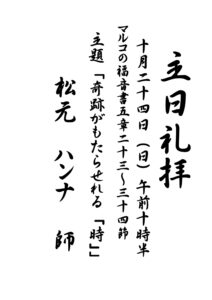 主日礼拝
十月二十四日（日）午前十時半
マルコの福音書五章二十三～三十四節
主題「奇跡がもたらせれる「時」」
松元　ハンナ　師